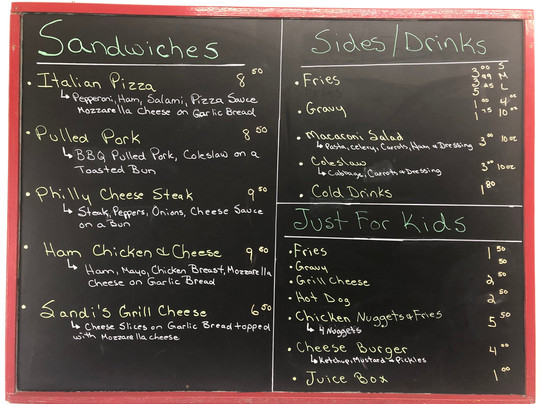 Sandwiches
• Italian Pizza 8 50
↳ Pepperoni, Ham, Salami, Pizza Sauce
Mozzarella Cheese on Garlic Bread
• Pulled Pork 8 50
↳ BBQ Pulled Pork, Coleslaw on a
Toasted Bun
• Philly Cheese Steak 9 50
↳ Steak, Peppers, Onions, Cheese Sauce
on a Bun
• Ham Chicken & Cheese 9 50
↳ Ham, Mayo, Chicken Breast, Mozzarella
Cheese on Garlic Bread
• Sandi's Grill Cheese 6 50
↳ Cheese Slices on Garlic Bread topped
with Mozzarella cheese
Sides/Drinks
3 00 S
• Fries 3 99 M
5 25 L
• Gravy 1 00 4 oz
1 75 10 oz
• Macaroni Salad 3 00 10 oz
↳ Pasta, Celery, Carrots, Ham & Dressing
• Coleslaw 3 00 10 oz
↳ Cabbage, Carrots & Dressing
• Cold Drinks 1 80
Just For Kids
• Fries 1 50
• Gravy 50
• Grill Cheese 2 50
• Hot Dog 2 50
• Chicken Nuggets & Fries 5 50
↳ 4 Nuggets
• Cheese Burger 4 00
↳ Ketchup, Mustard & Pickles
• Juice Box 1 00